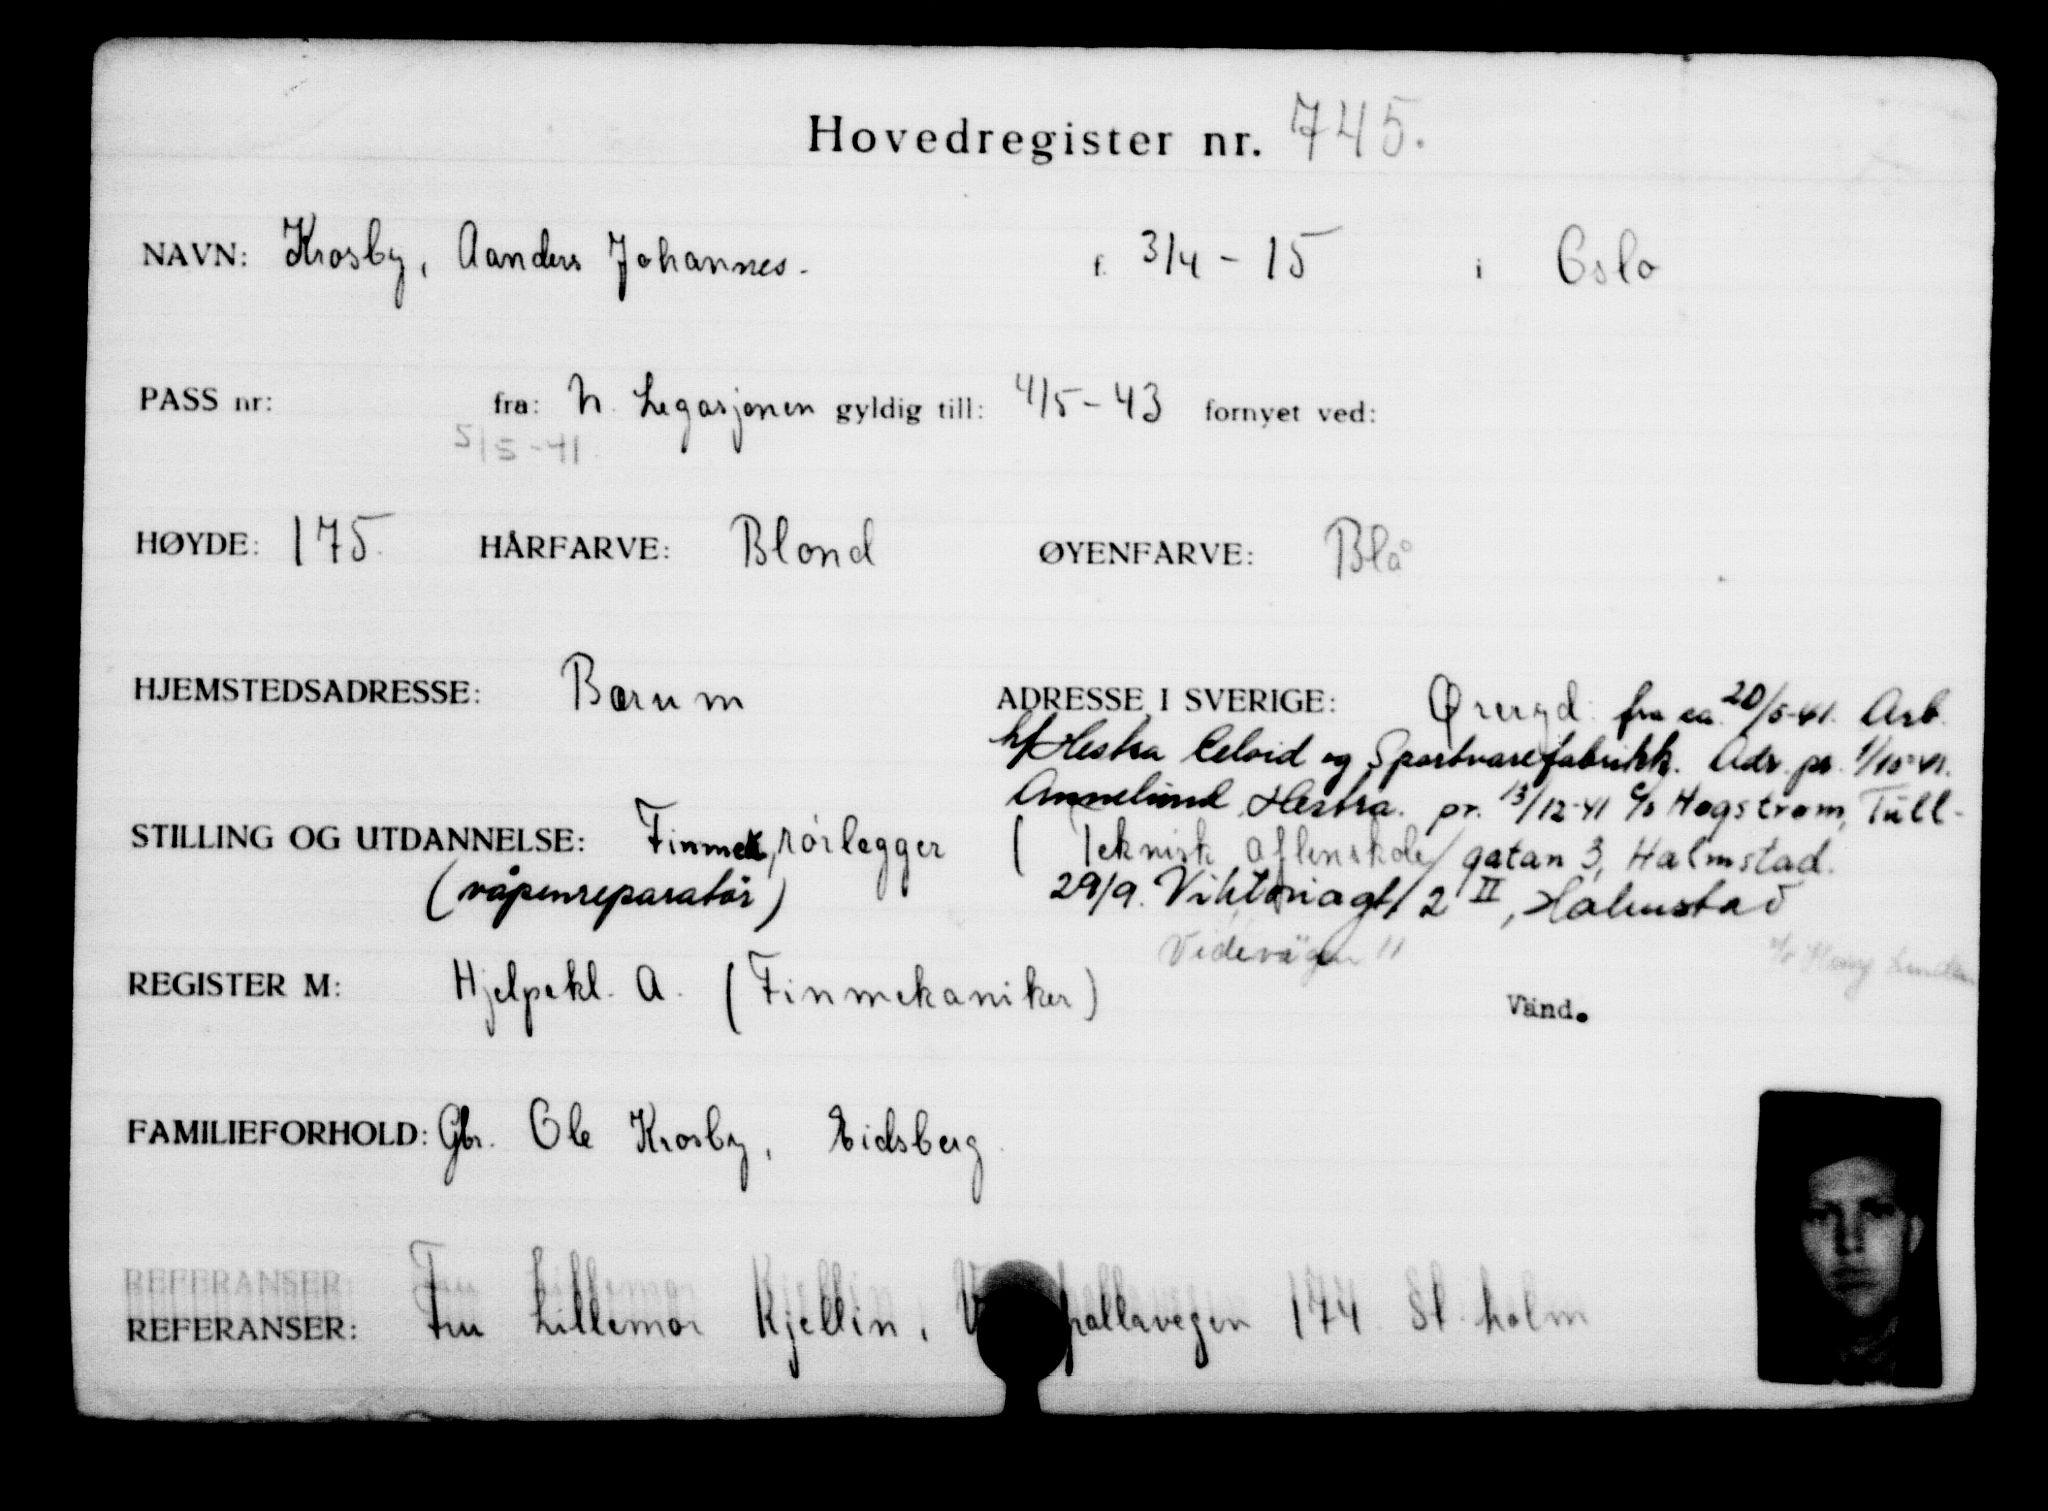 Hovedregister nr. 745.
NAVN: Krosby, Aanders Johannes. f. 3/4 - 15 i Oslo
PASS nr: fra: N. Legasjonen gyldig till: 4/5 - 43 fornyet ved:
5/5 - 41.
HØYDE: 175. HÅRFARVE: Blond ØYENFARVE: Blå
HJEMSTEDSADRESSE: Bærum ADRESSE I SVERIGE: Øreryd. fra ca. 20/5-41. Arb.
h/Hestra Celoid og Sportvarefabrikk. Adr. pr. 1/10-41.
Annelund Hestra. pr. 13/12-41 c/o Høgstrøm, Tull-
STILLING OG UTDANNELSE: Finmek, rörlegger ( Teknisk aftenskole / gatan 3, Halmstad.
(våpenreparatör) 29/9. Viktoriagt. 2 II, Halmstad
Videvägen 11 c/o Harry
REGISTER M: Hjelpekl. A. (Finmekaniker)
Vänd.
FAMILIEFORHOLD: Gbr. Ole Krosby, Eidsberg.
REFERANSER: Fru Lillemor Kjellin, hallavegen 174 St. holm